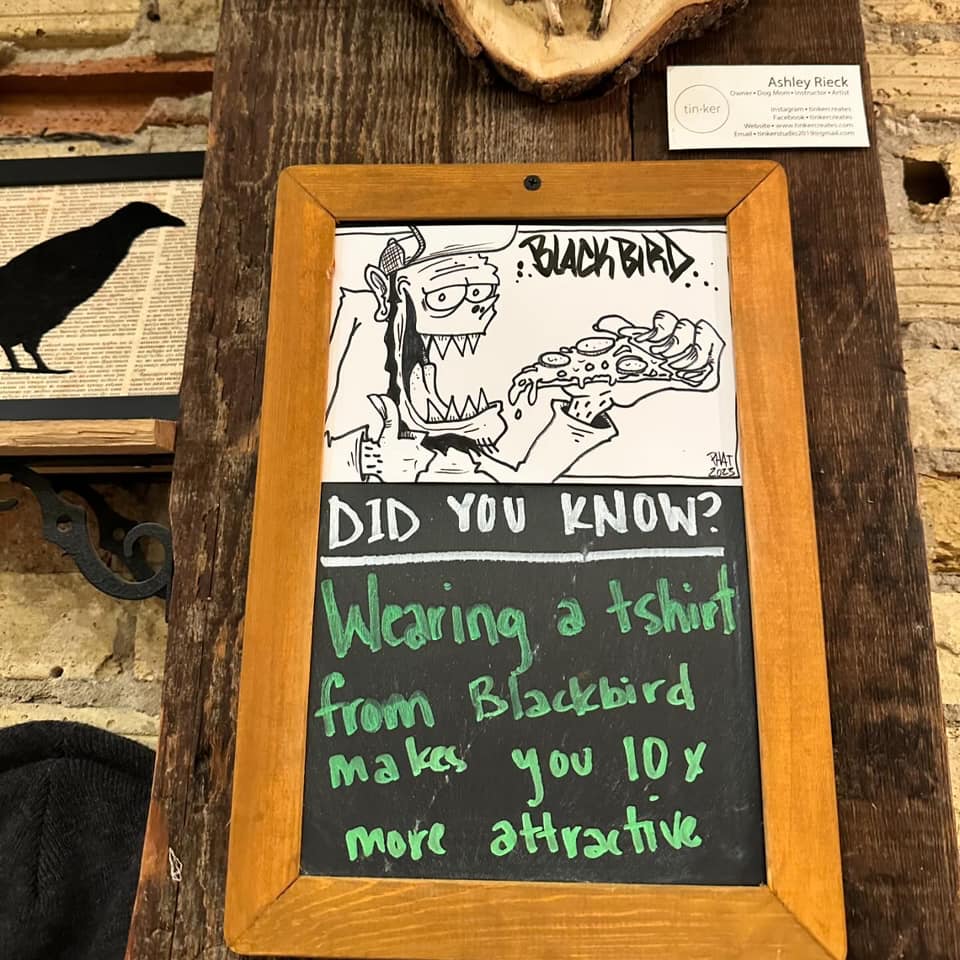 Ashley Rieck
Owner • Dog Mom • Instructor • Artist
tin·ker
Instagram • tinkercreates
Facebook • tinkercreates
Website • www.tinkercreates.com
Email • tinkerstudio2019@gmail.com
BLACKBIRD
PHAT
2023
DID YOU KNOW?
Wearing a tshirt
from Blackbird
makes you 10x
more attractive